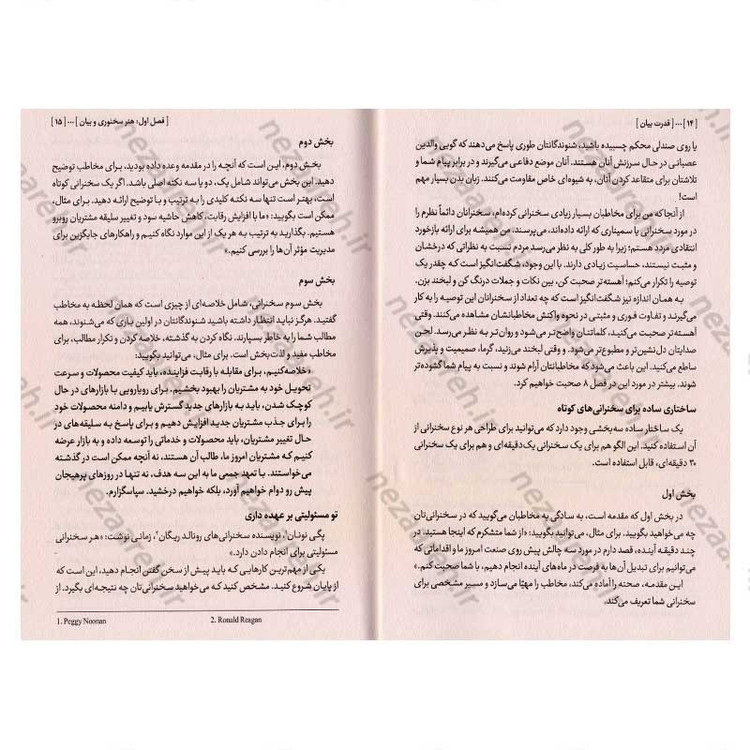 [ ۱۴ ] ... [ قدرت بیان ]
یا روی صندلی محکم چسبیده باشید، شنوندگانتان طوری پاسخ می‌دهند که گویی والدین
عصبانی در حال سرزنش آنان هستند. آنان موضع دفاعی می‌گیرند و در برابر پیام شما و
تلاشتان برای متقاعد کردن آنان، به شیوه‌ای خاص مقاومت می‌کنند. زبان بدن بسیار مهم
است!
از آنجا که من برای مخاطبان بسیار زیادی سخنرانی کرده‌ام، سخنرانان دائماً نظرم را
در مورد سخنرانی یا سمیناری که ارائه داده‌اند، می‌پرسند. من همیشه برای ارائه بازخورد
انتقادی مردد هستم؛ زیرا به طور کلی به نظر می‌رسد مردم نسبت به نظراتی که درخشان
و مثبت نیستند، حساسیت زیادی دارند. با این وجود، شگفت‌انگیز است که چقدر یک
توصیه را تکرار می‌کنم: آهسته‌تر صحبت کن، بین نکات و جملات درنگ کن و لبخند بزن.
به همان اندازه نیز شگفت‌انگیز است که چه تعداد از سخنرانان این توصیه را به کار
می‌گیرند و تفاوت فوری و مثبتی در نحوه واکنش مخاطبانشان مشاهده می‌کنند. وقتی
آهسته‌تر صحبت می‌کنید، کلماتتان واضح‌تر می‌شود و روان‌تر به نظر می‌رسد. لحن
صدایتان دل‌نشین‌تر و مطبوع‌تر می‌شود. وقتی لبخند می‌زنید، گرما، صمیمیت و پذیرش
ساطع می‌کنید. این باعث می‌شود که مخاطبانتان آرام شوند و نسبت به پیام شما گشوده‌تر
شوند. بیشتر در مورد این در فصل ۸ صحبت خواهیم کرد.
ساختاری ساده برای سخنرانی‌های کوتاه
یک ساختار ساده سه‌بخشی وجود دارد که می‌توانید برای طراحی هر نوع سخنرانی از
آن استفاده کنید. این الگو هم برای یک سخنرانی یک‌دقیقه‌ای و هم برای یک سخنرانی
۳۰ دقیقه‌ای، قابل استفاده است.
بخش اول
در بخش اول که مقدمه است، به سادگی به مخاطبان می‌گویید که در سخنرانی‌تان
چه می‌خواهید بگویید. برای مثال، می‌توانید بگویید: «از شما متشکرم که اینجا هستید. در
چند دقیقه آینده، قصد دارم در مورد سه چالش پیش روی صنعت امروز ما و اقداماتی که
می‌توانیم برای تبدیل آن‌ها به فرصت در ماه‌های آینده انجام دهیم، با شما صحبت کنم.»
این مقدمه، صحنه را آماده می‌کند، مخاطب را مهیّا می‌سازد و مسیر مشخصی برای
سخنرانی شما تعریف می‌کند.
[ فصل اول: هنر سخنوری و بیان ] ... [ ۱۵ ]
بخش دوم
بخش دوم، این است که آنچه را در مقدمه وعده داده بودید، برای مخاطب توضیح
دهید. این بخش می‌تواند شامل یک، دو یا سه نکته اصلی باشد. اگر یک سخنرانی کوتاه
است، بهتر است تنها سه نکته کلیدی را به ترتیب و با توضیح ارائه دهید. برای مثال،
ممکن است بگویید: «ما با افزایش رقابت، کاهش حاشیه سود و تغییر سلیقه مشتریان روبرو
هستیم. بگذارید به ترتیب به هر یک از این موارد نگاه کنیم و راهکارهای جایگزین برای
مدیریت مؤثر آن‌ها را بررسی کنیم.»
بخش سوم
بخش سوم سخنرانی، شامل خلاصه‌ای از چیزی است که همان لحظه به مخاطب
گفتید. هرگز نباید انتظار داشته باشید شنوندگانتان در اولین باری که می‌شنوند، همه
مطالب شما را به خاطر بسپارند. نگاه کردن به گذشته، خلاصه کردن و تکرار مطالب، برای
مخاطب مفید و لذت‌بخش است. برای مثال، می‌توانید بگویید:
«خلاصه‌کنیم، برای مقابله با رقابت فزاینده، باید کیفیت محصولات و سرعت
تحویل خود به مشتریان را بهبود بخشیم. برای رویارویی با بازارهای در حال
کوچک شدن، باید به بازارهای جدید گسترش یابیم و دامنه محصولات خود
را برای جذب مشتریان جدید افزایش دهیم و برای پاسخ به سلیقه‌های در
حال تغییر مشتریان، باید محصولات و خدماتی را توسعه داده و به بازار عرضه
کنیم که مشتریان امروز ما، طالب آن هستند، نه آنچه ممکن است در گذشته
می‌خواستند. با تعهد جمعی ما به این سه هدف، نه تنها در روزهای پرهیجان
پیش رو دوام خواهیم آورد، بلکه خواهیم درخشید. سپاسگزارم.
تو مسئولیتی بر عهده داری
پگی نونان۱، نویسنده سخنرانی‌های رونالد ریگان۲، زمانی نوشت: «هر سخنرانی
مسئولیتی برای انجام دادن دارد.»
یکی از مهم‌ترین کارهایی که باید پیش از سخن گفتن انجام دهید، این است که
از پایان شروع کنید. مشخص کنید که می‌خواهید سخنرانی‌تان چه نتیجه‌ای بگیرد. از
1. Peggy Noonan 2. Ronald Reagan
nezaareh.ir